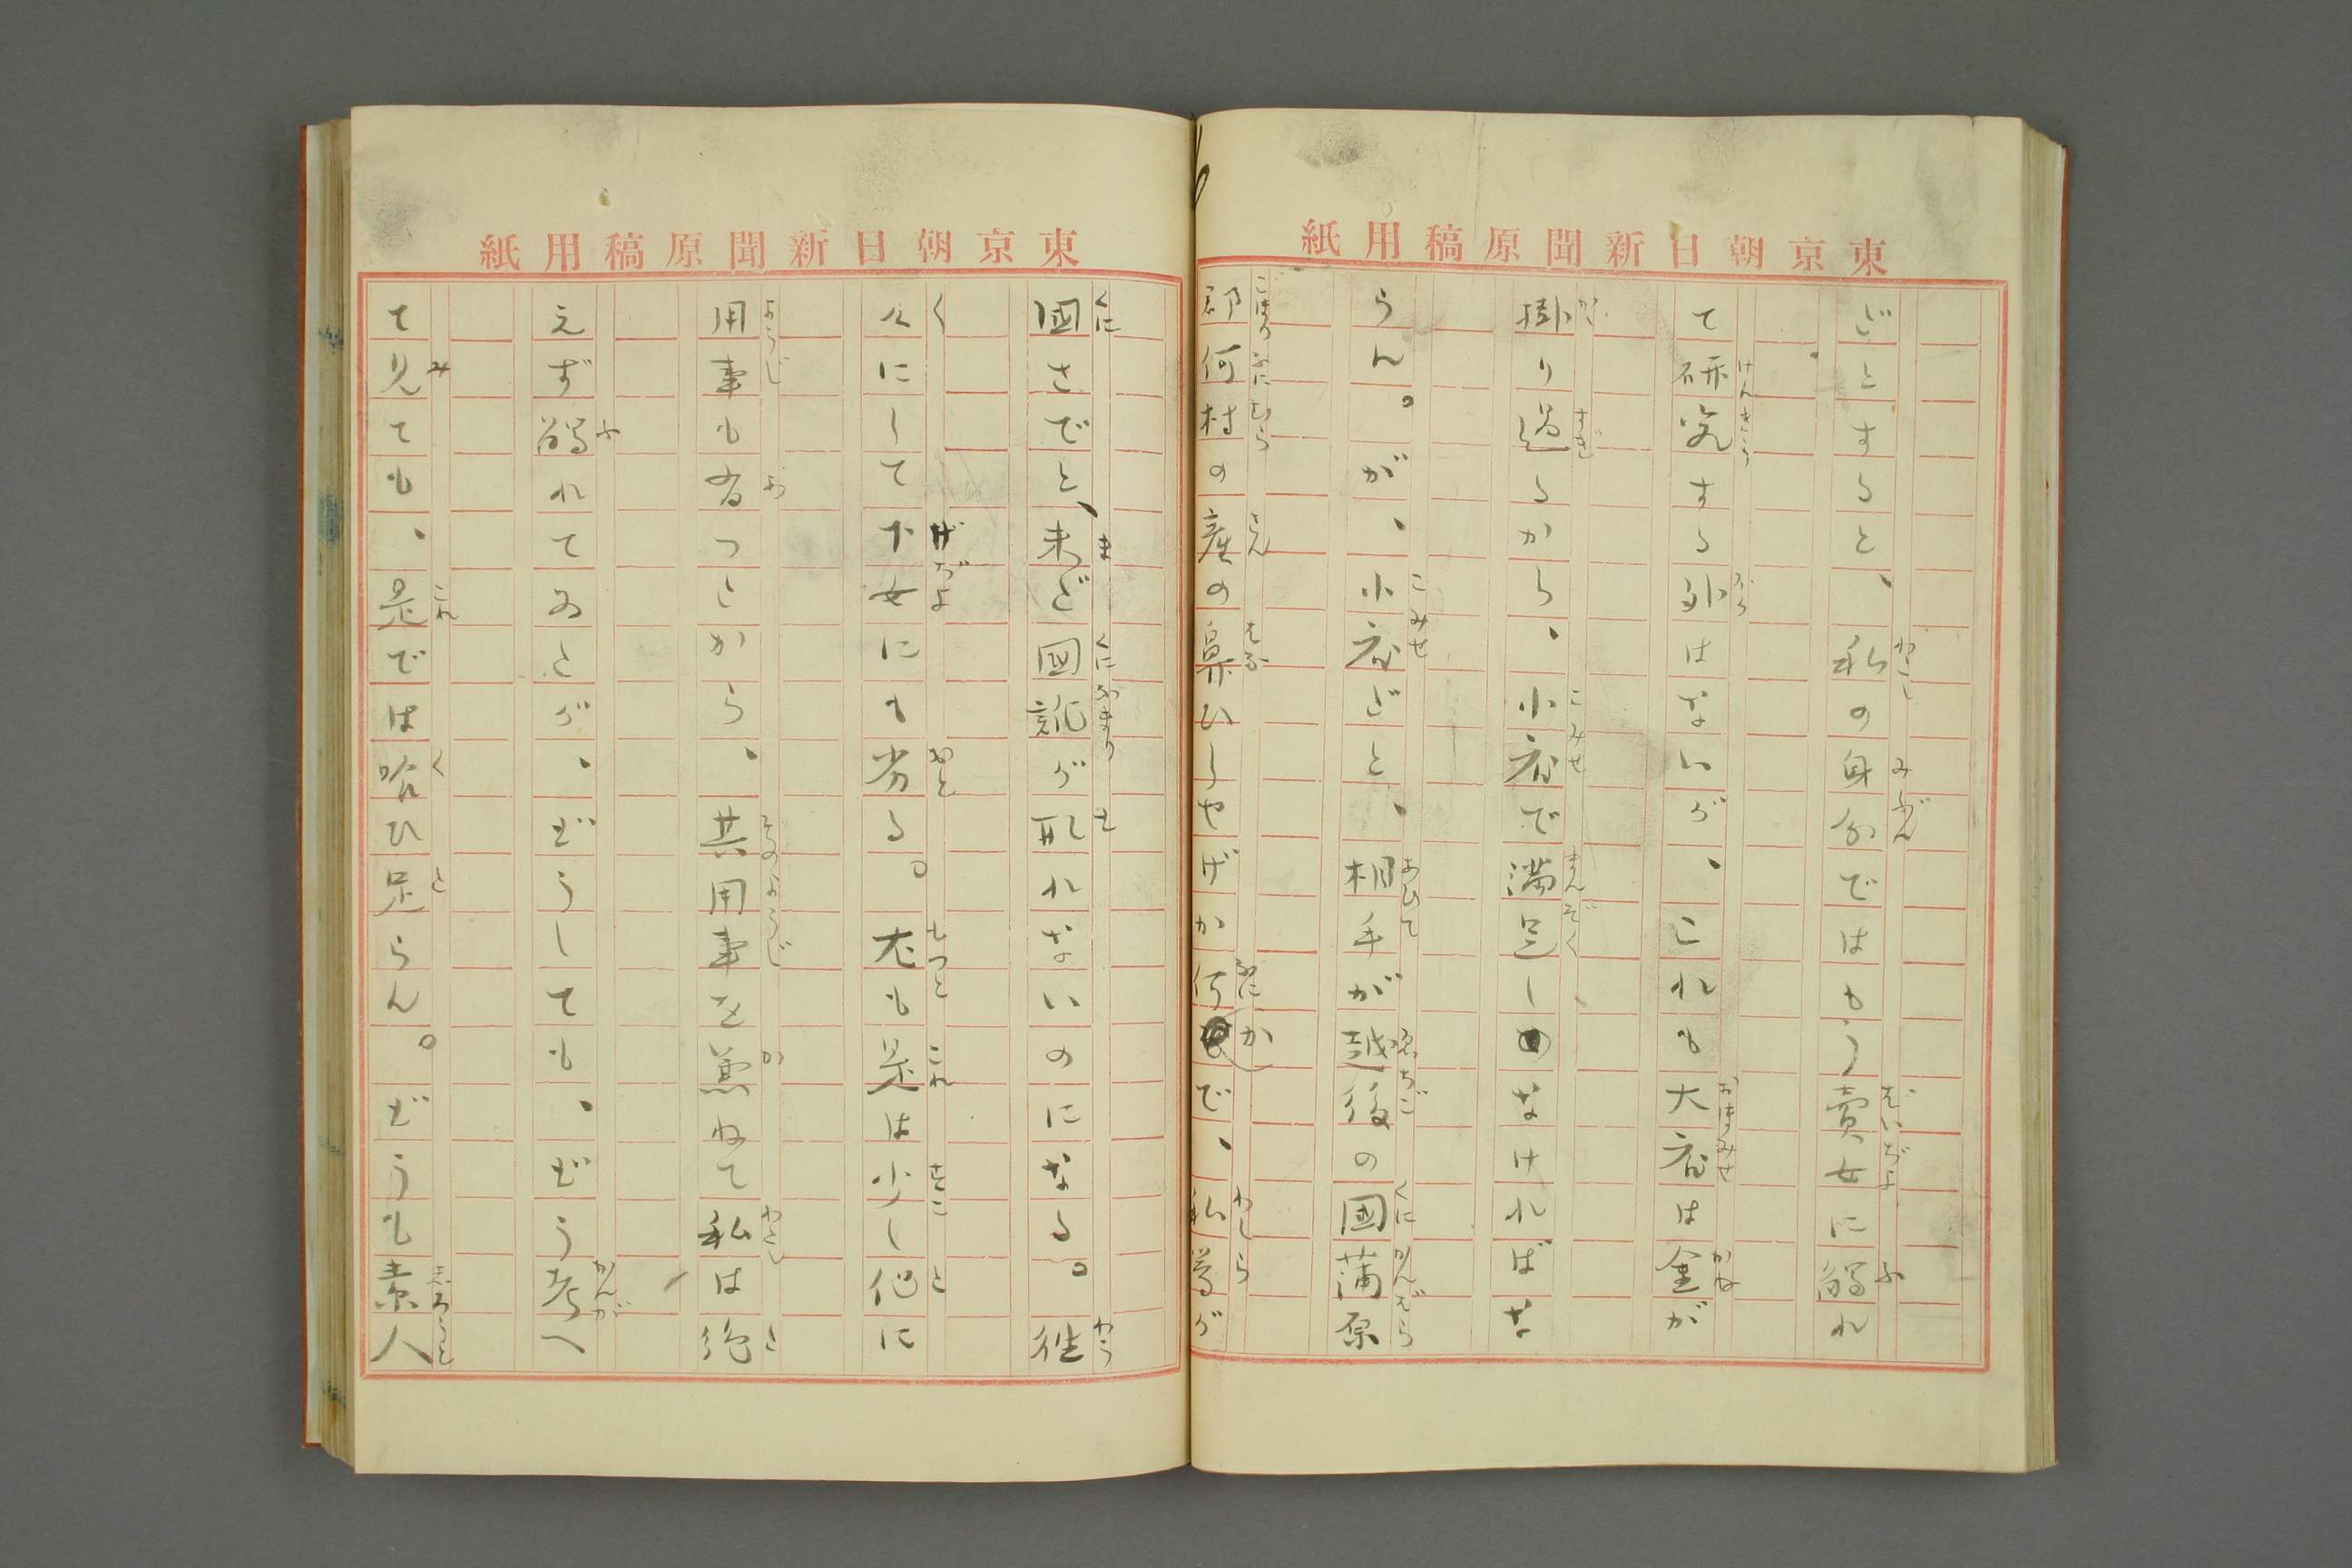 東京朝日新聞原稿用紙
だとすると、私の身分ではもう賣女に觸れ
て研究する外はないが、これも大店は金が
掛り過るから、小店で滿足しなければな
らん。が、小店だと、相手が越後の國蒲原
郡何村の産の鼻ひしやげか何かで、私等が
東京朝日新聞原稿用紙
國さでと、未だ國訛が取れないのになる。往
々にして下女にも劣る。尤も是は少し他に
用事も有つたから、其用事を兼ねて私は絶
えず觸れてゐたが、どうしても、どう考へ
て見ても、是では喰ひ足らん。どうも素人